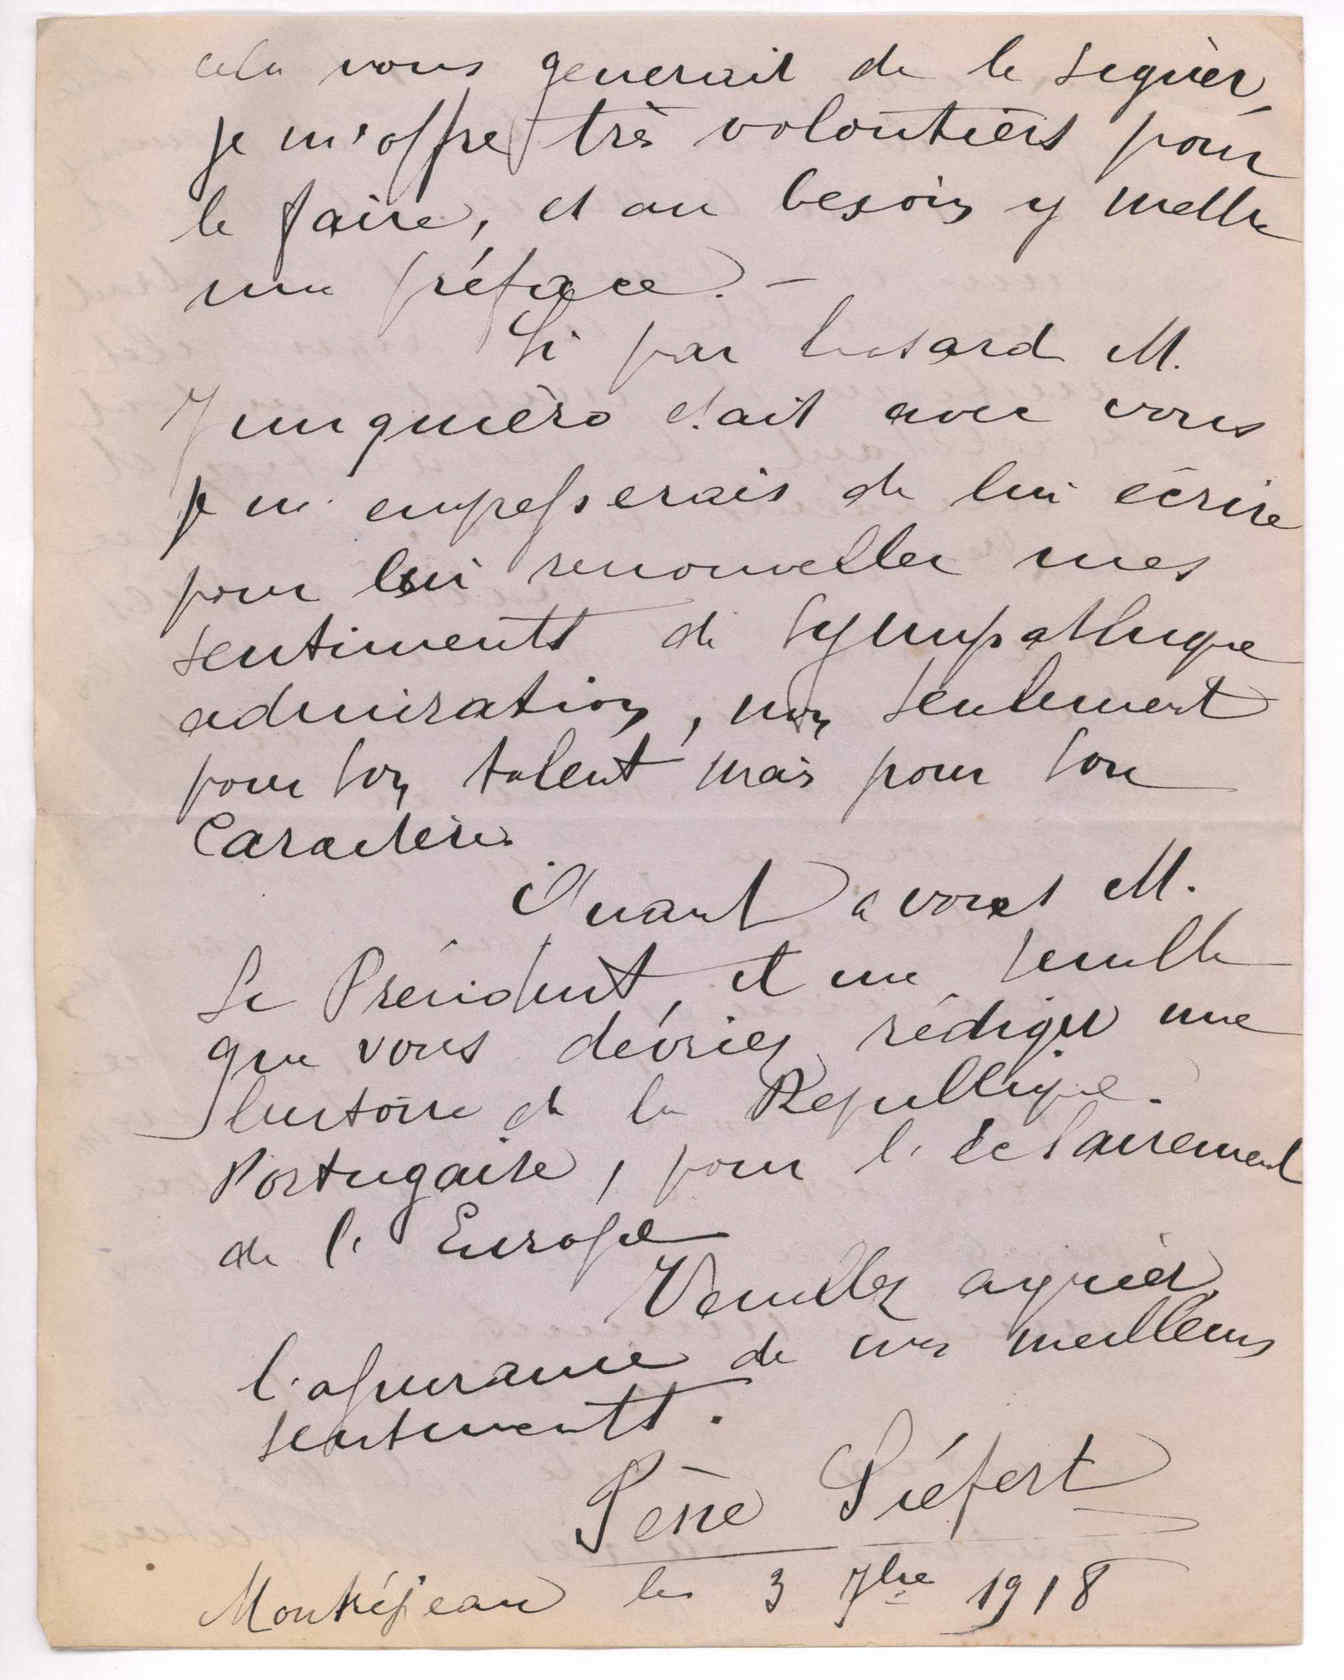 cela vous generait de le signèr,
je m'offre très volontiers pour
le faire, et au besoin y mettre
une préface. –
Si par hasard M.
Junqueiro etait avec vous
je m'empesserais de lui écrire
pour lui renouveller mes
sentiments de sympathique
admiration, non seulement
pour son talent mais pour son
Caractère.
Quant a vous M.
Le Président, il me semble
que vous dévriez rédiger une
histoire de la Republique
Portugaise, pour l'eclairement
de l'Europe
Veuillez agréer,
l'assurance de mes meilleurs
sentiments.
Père Piéfert
Montréjeau le 3 7bre 1918